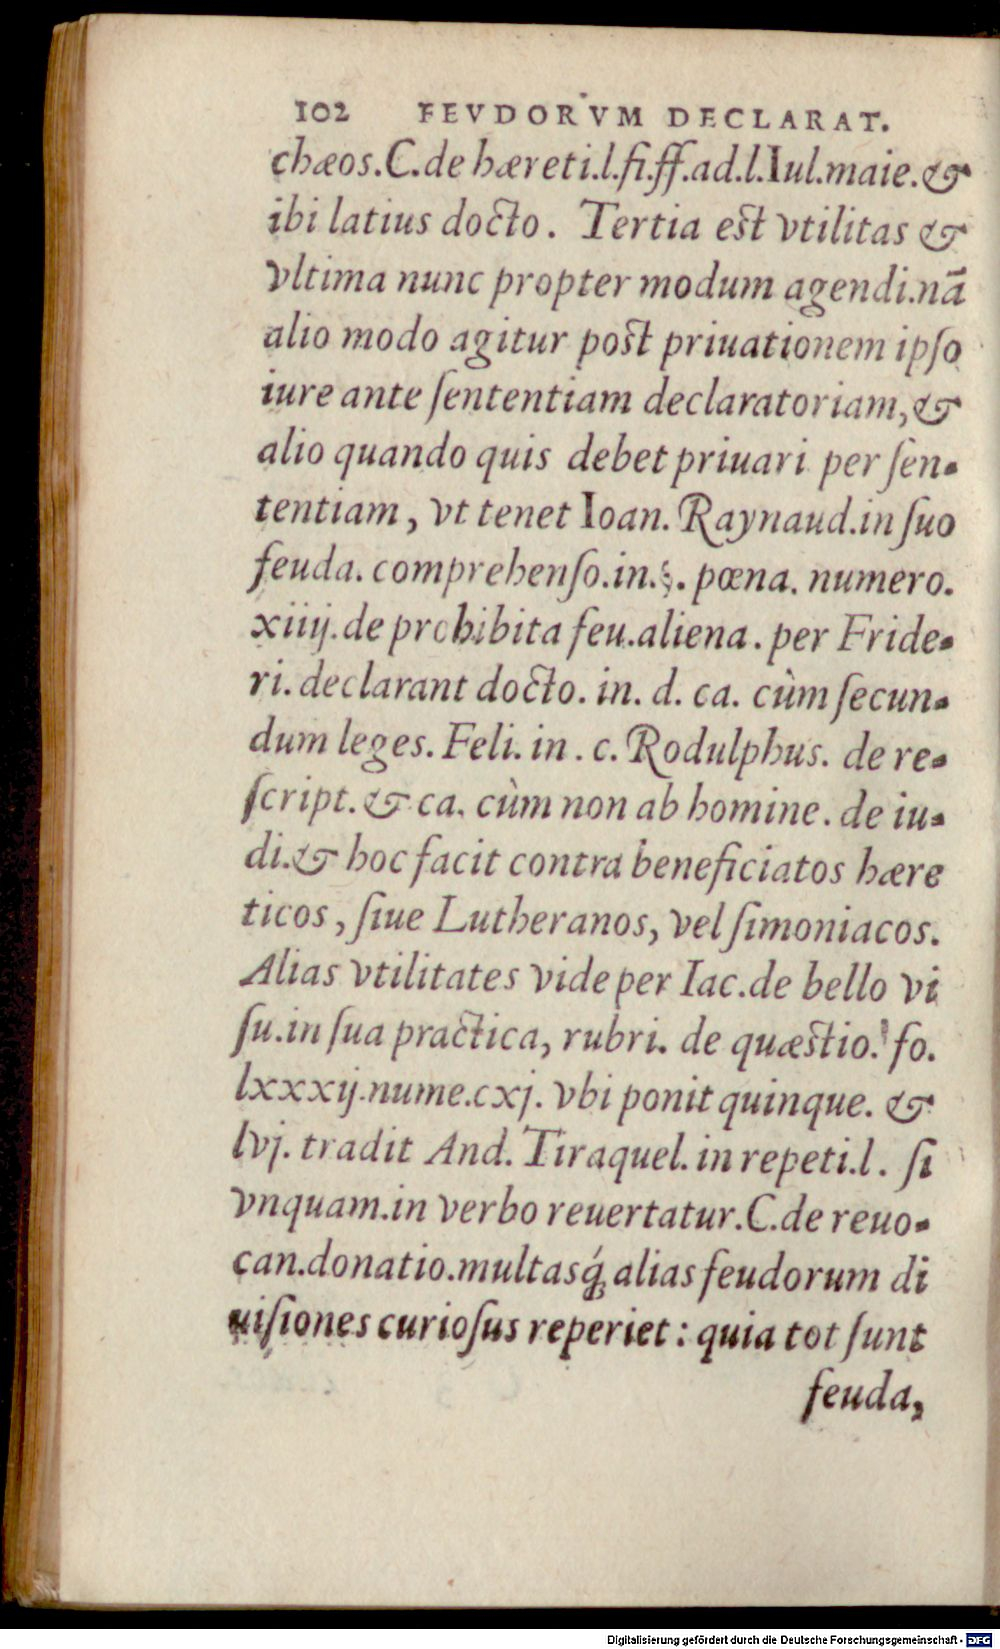 102 FEVDORVM DECLARAT.
chæos.C.de hæreti.l.fi.ff.ad.l.Iul.maie.&
ibi latius docto. Tertia est vtilitas &
vltima nunc propter modum agendi.nā
alio modo agitur post priuationem ipſo
iure ante ſententiam declaratoriam, &
alio quando quis debet priuari per ſen-
tentiam, vt tenet Ioan. Raynaud.in ſuo
feuda. comprehenſo.in.§. pœna. numero.
xiiij.de prohibita feu.aliena. per Fride-
ri. declarant docto. in. d. ca. cùm ſecun-
dum leges. Feli. in. c. Rodulphus. de re-
ſcript. & ca. cùm non ab homine. de iu-
di.& hoc facit contra beneficiatos hære
ticos, ſiue Lutheranos, vel ſimoniacos.
Alias vtilitates vide per Iac.de bello vi
ſu.in ſua practica, rubri. de quæstio. fo.
lxxxij.nume.cxj. vbi ponit quinque. &
lvj. tradit And. Tiraquel. in repeti.l. ſi
vnquam.in verbo reuertatur.C.de reuo-
can.donatio.multasq́; alias feudorum di
uiſiones curioſus reperiet: quia tot ſunt
feuda,
Digitalisierung gefördert durch die Deutsche Forschungsgemeinschaft - DFG